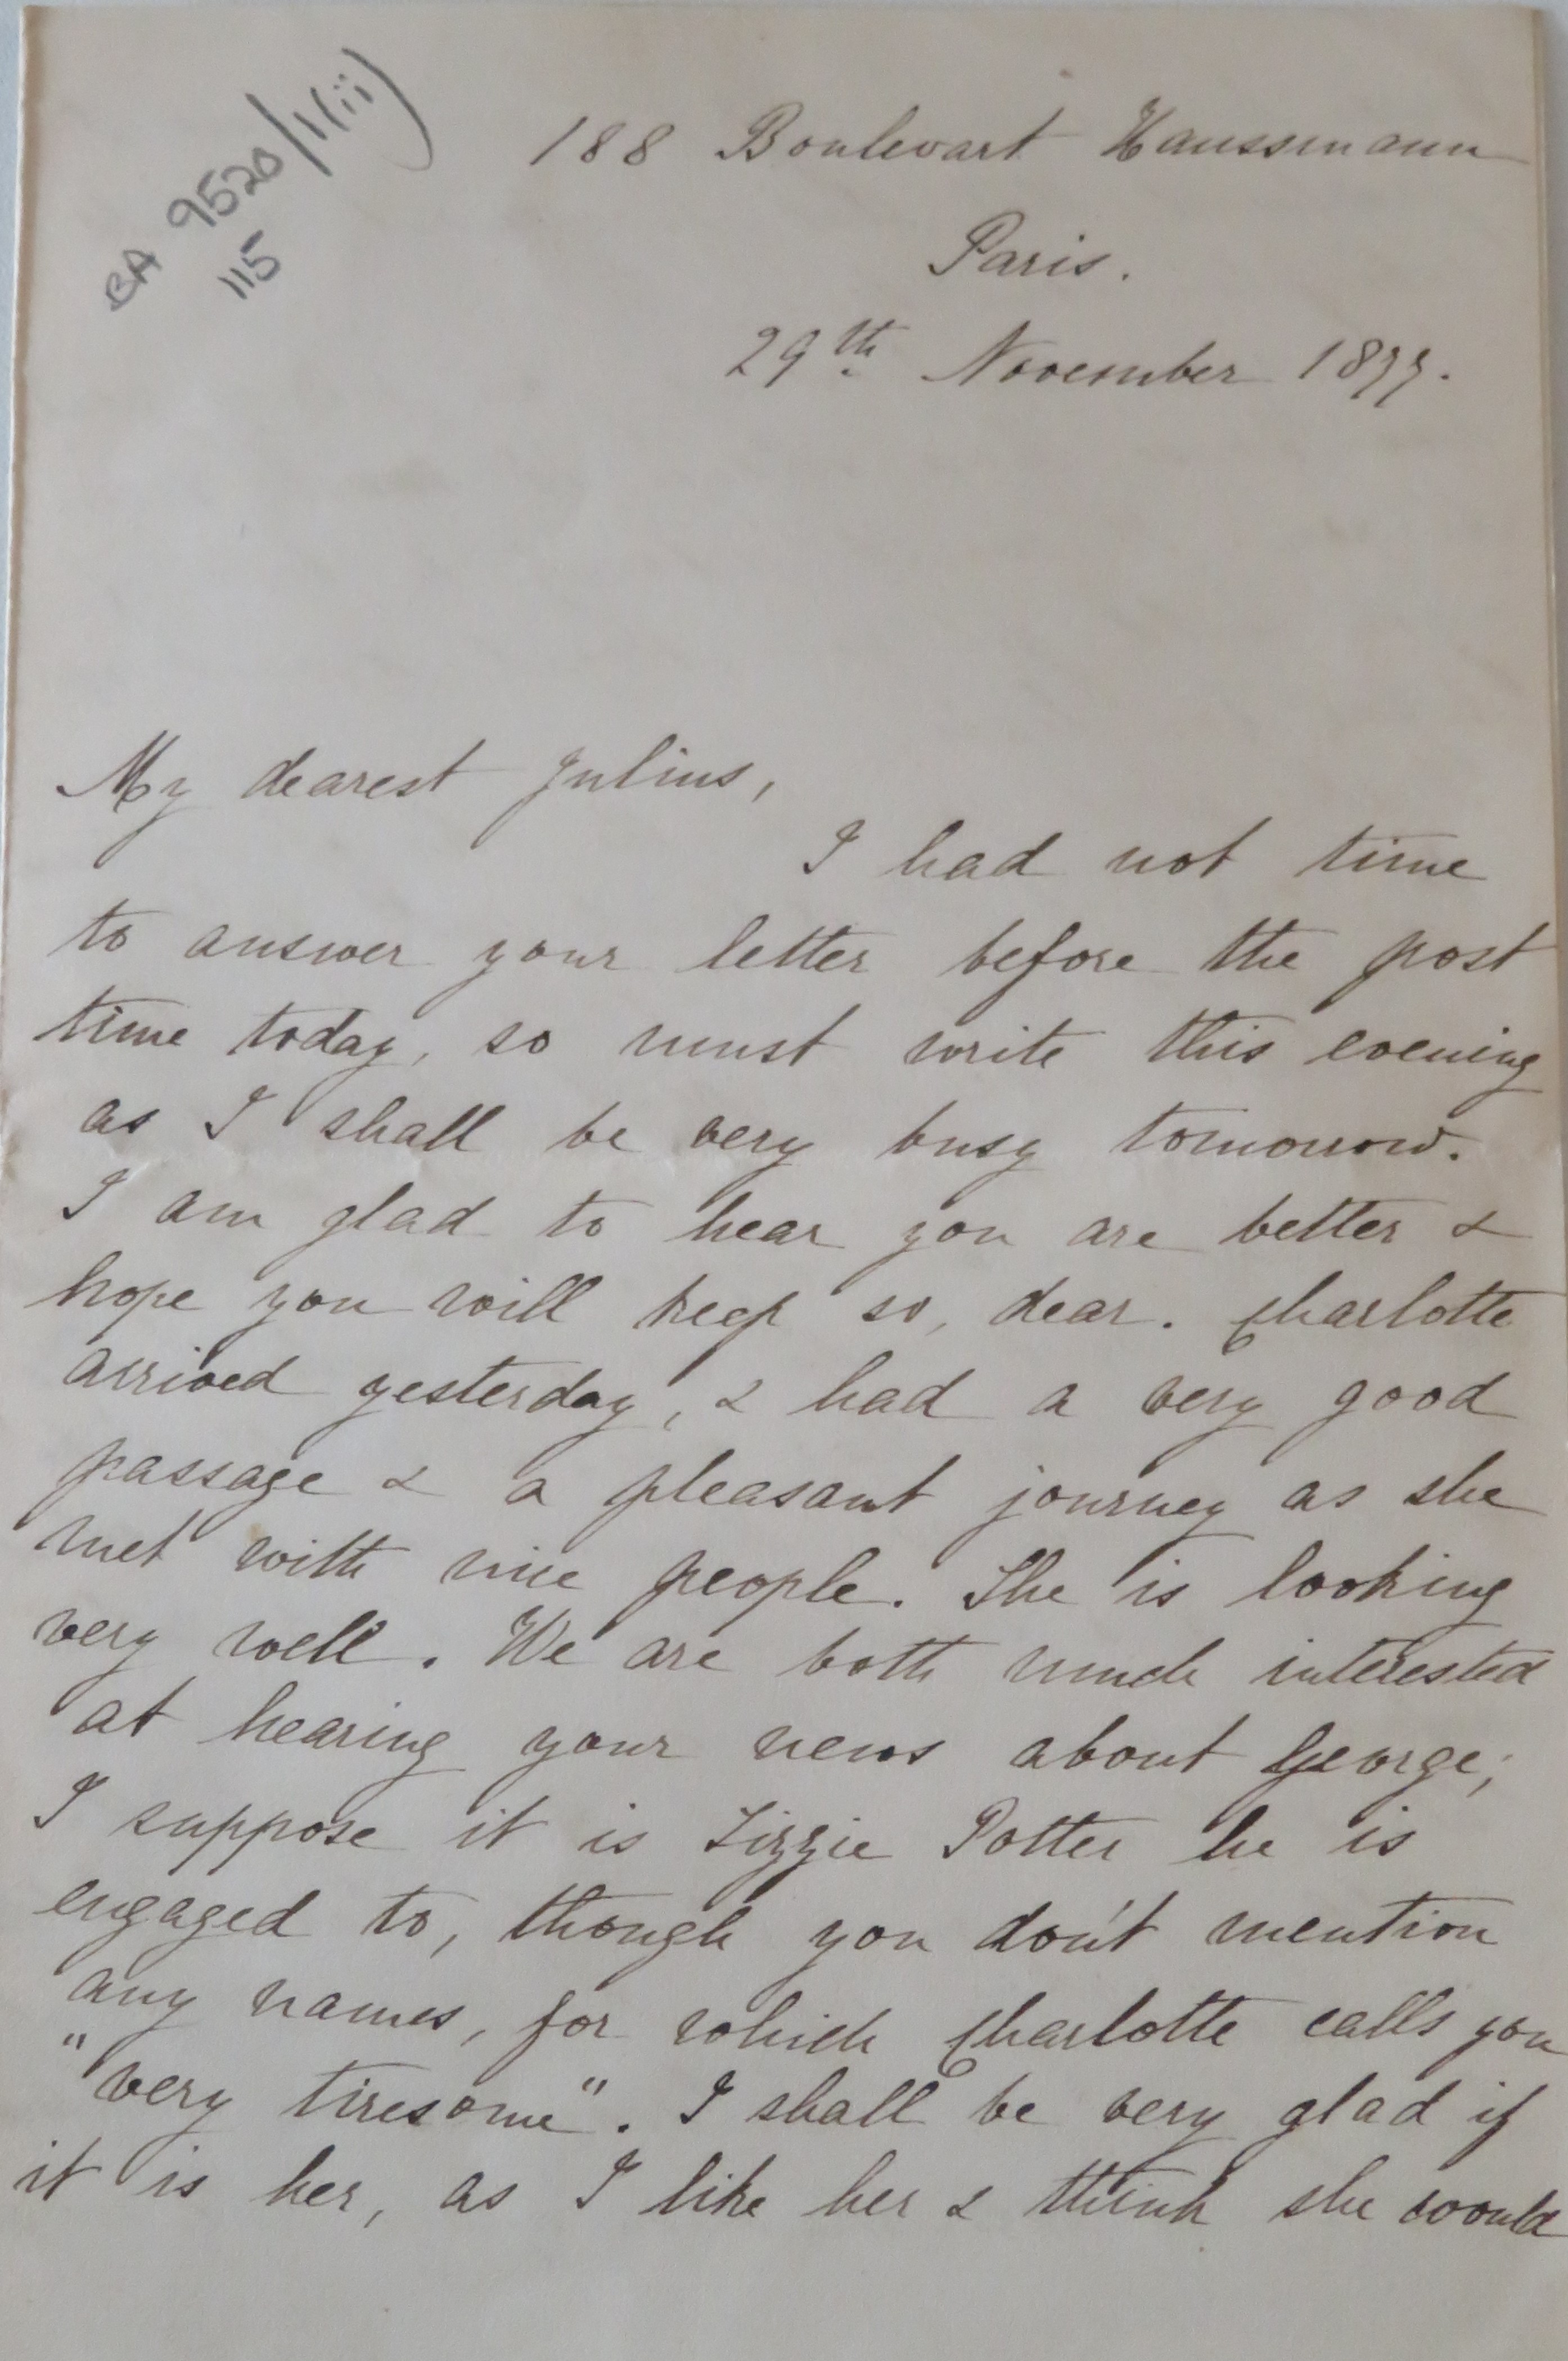 BA 9520/1(ii)
115
188 Boulevart Haussmann
Paris.
29th November 1877.
My dearest Julius,
I had not time
to answer your letter before the post
time today, so must write this evening
as I shall be very busy tomorrow.
I am glad to hear you are better &
hope you will keep so, dear. Charlotte
arrived yesterday, & had a very good
passage & a pleasant journey as she
met with nice people. She is looking
very well. We are both much interested
at hearing your news about George;
I suppose it is Lizzie Potter he is
engaged to, though you don't mention
any names, for which Charlotte calls you
"very tiresome". I shall be very glad if
it is her, as I like her & think she would